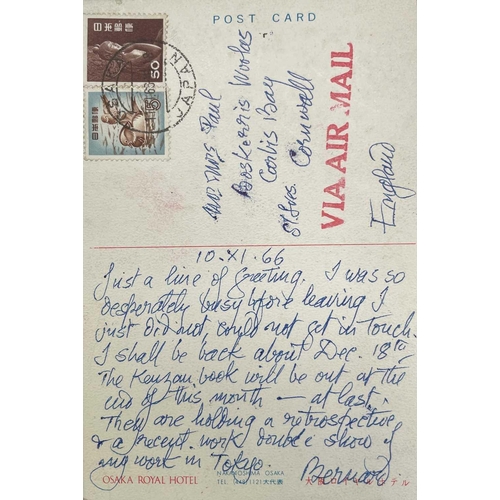 POST CARD
日本郵便
50
日本郵便
OSAKA
JAPAN
VIA AIR MAIL
Paul
Boskerris Woolas
Carbis Bay
St. Ives Cornwall
England
10.XI.66
Just a line of greeting. I was so
desperately busy before leaving I
just did not, could not get in touch.
I shall be back about Dec. 18th
The Kenzan book will be out at the
end of this month — at last.
They are holding a retrospective
& a recent work double show of
my work in Tokyo.
Bernard
OSAKA ROYAL HOTEL
NAKANOSHIMA OSAKA
TEL. 大代表